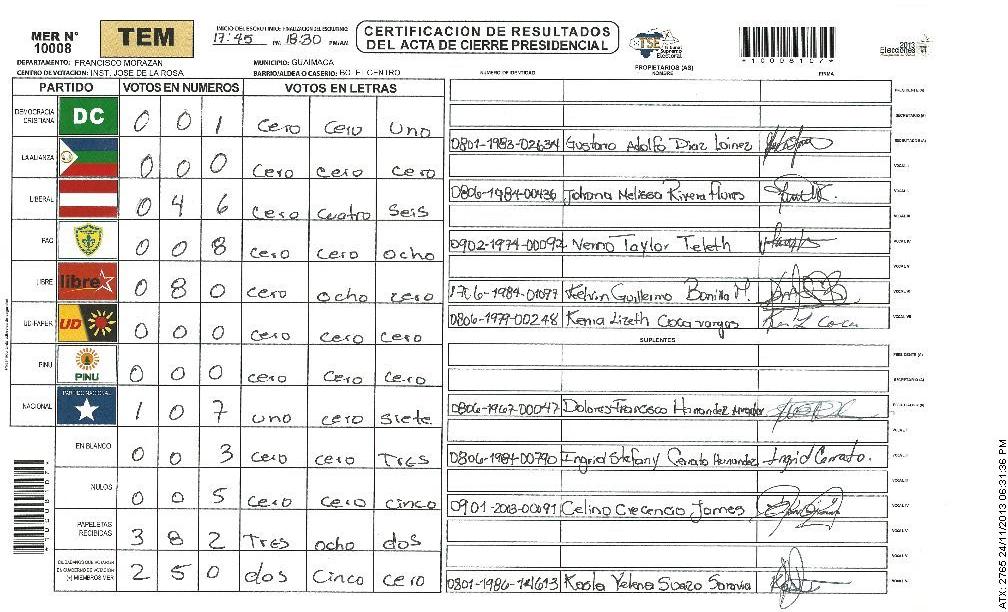 MER N° 10008
TEM
INICIO DEL ESCRUTINIO 17:45 PM
FINALIZACION DEL ESCRUTINIO 18:30 PM/AM
CERTIFICACION DE RESULTADOS
DEL ACTA DE CIERRE PRESIDENCIAL
TSE Tribunal Supremo Electoral
*10008107*
2013 Elecciones
DEPARTAMENTO: FRANCISCO MORAZAN
MUNICIPIO: GUAIMACA
CENTRO DE VOTACION: INST. JOSE DE LA ROSA
BARRIO/ALDEA O CASERIO: BO. EL CENTRO
NUMERO DE IDENTIDAD
PROPIETARIOS (AS)
NOMBRE
FIRMA
PARTIDO VOTOS EN NUMEROS VOTOS EN LETRAS
DEMOCRACIA CRISTIANA DC 0 0 1 cero cero uno
LA ALIANZA 0 0 0 cero cero cero
LIBERAL 0 4 6 cero cuatro seis
PAC 0 0 8 cero cero ocho
LIBRE libre 0 8 0 cero ocho cero
UD/FAPER UD 0 0 0 cero cero cero
PINU PINU 0 0 0 cero cero cero
NACIONAL PARTIDO NACIONAL 1 0 7 uno cero siete
EN BLANCO 0 0 3 cero cero Tres
NULOS 0 0 5 cero cero cinco
PAPELETAS RECIBIDAS 3 8 2 Tres ocho dos
CIUDADANOS QUE VOTARON EN CUADERNO DE VOTACION (+) MIEMBROS MER 2 5 0 dos Cinco cero
PRESIDENTE (A)
SECRETARIO (A)
0801-1983-02634 Gustavo Adolfo Diaz Lainez ESCRUTADOR (A)
VOCAL I
0806-1984-00436 Johana Melissa Rivera flores VOCAL II
VOCAL III
0902-1974-00092 Nenno Taylor Teleth VOCAL IV
VOCAL V
1706-1984-01097 Kelvin Guillermo Bonilla M. VOCAL VI
0806-1979-00248 Kenia Lizeth Coca vargas VOCAL VII
SUPLENTES
PRESIDENTE (A)
SECRETARIO (A)
0806-1967-00047 Dolores Francisco Hernandez Amador ESCRUTADOR (A)
VOCAL I
0806-1984-00790 Ingrid Stefany Cerrato Hernandez Ingrid Cerrato. VOCAL II
VOCAL III
0901-2013-00091 Celino Crecencio James VOCAL IV
VOCAL V
0801-1986-14613 Karla Yelena Suazo Saravia
ATX 2765 24/11/2013 06:31:36 PM